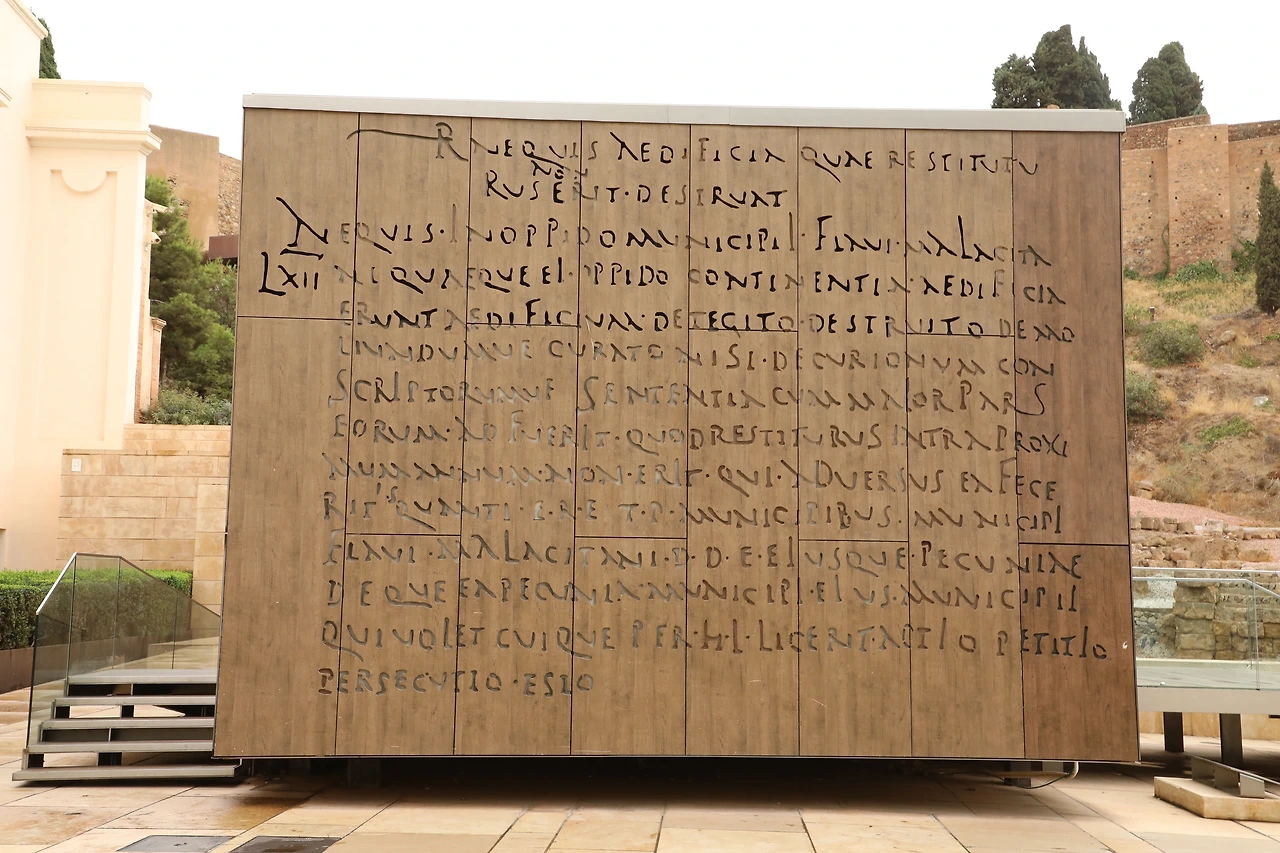 R NE QUIS AEDIFICIA QUAE RESTITUTU
NON
RUS ERIT · DESTRUAT
NE QUIS · IN OPPIDO MUNICIPII · FLAVI · MALACITA
LXII NI QUAEQUE EI · OPPIDO CONTINENTIA · AEDIFICIA
ERUNT AEDIFICIUM · DETEGITO · DESTRUITO DEMO
LIUNDUMUE CURATO NISI · DECURIONUM CON
SCRIPTORUMUE SENTENTIA CUM MAIOR PARS
EORUM · AD FUERIT · QUOD RESTITURUS INTRA PROXI
MUM ANNUM · NON · ERIT · QUI · ADVERSUS EA FECE
RIT IS QUANTI · E · R · E T · P · MUNICIPIBUS · MUNICIPI
FLAVI · MALACITANI · D · D · E · EIUSQUE · PECUNIAE
DEQUE EA PECUNIA MUNICIPI · EIUS · MUNICIPII
QUI VOLET CUIQUE PER · H · L · LICEBIT · ACTIO PETITIO
PERSECUTIO · ESTO